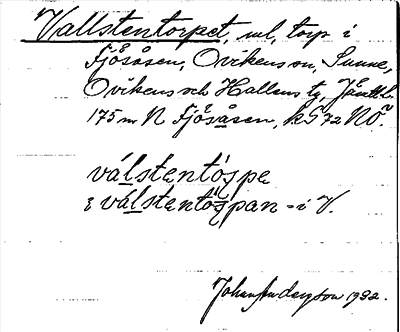 Vallstentorpet, ml, torp i
Fjösåsen, Ovikens sn, Sunne,
Ovikens och Hallens tg, Jämtl.l.
175 m N Fjösåsen, k S 72 NÖ.
válstentóspe
válstentóspan - i V.
Johan Anderson 1932.